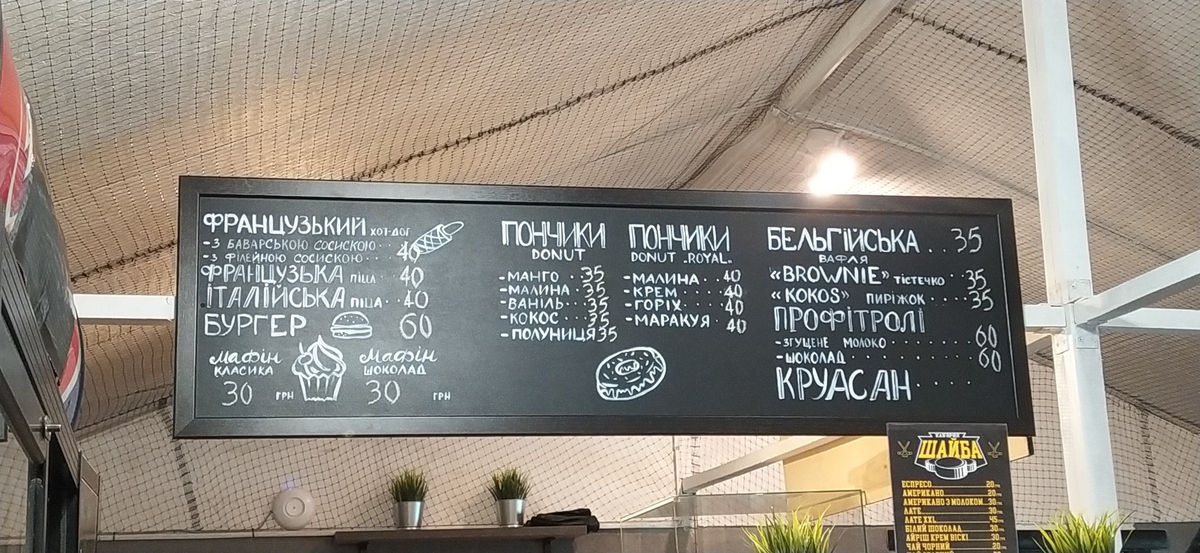 ФРАНЦУЗЬКИЙ ХОТ-ДОГ
-З БАВАРСЬКОЮ СОСИСКОЮ
-З ФІЛЕЙНОЮ СОСИСКОЮ 40
ФРАНЦУЗЬКА ПІЦА 40
ІТАЛІЙСЬКА ПІЦА 40
БУРГЕР 60
Мафін КЛАСИКА 30 ГРН
Мафін ШОКОЛАД 30 ГРН
ПОНЧИКИ
DONUT
-МАНГО 35
-МАЛИНА 35
-ВАНІЛЬ 35
-КОКОС 35
-ПОЛУНИЦЯ 35
ПОНЧИКИ
DONUT „ROYAL"
-МАЛИНА 40
-КРЕМ 40
-ГОРІХ 40
-МАРАКУЯ 40
БЕЛЬГІЙСЬКА 35
ВАФЛЯ
«BROWNIE» ТІСТЕЧКО 35
«KOKOS» ПИРІЖОК 35
ПРОФІТРОЛІ
-ЗГУЩЕНЕ МОЛОКО 60
-ШОКОЛАД 60
КРУАСАН
ШАЙБА
ЕСПРЕСО 20
АМЕРИКАНО 20
АМЕРИКАНО З МОЛОКОМ 30
ЛАТЕ 30
ЛАТЕ XXL 45
БІЛИЙ ШОКОЛАД 30
АЙРІШ КРЕМ ВІСКІ 30
ЧАЙ ЧОРНИЙ 20